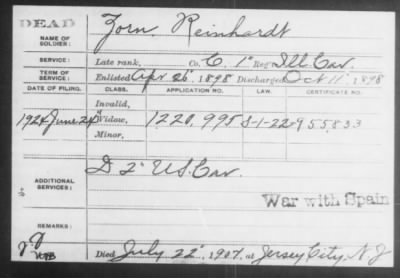 DEAD
NAME OF SOLDIER: Zorn, Reinhardt
SERVICE: Late rank, Co. C, 1" Reg't Ill Cav.
TERM OF SERVICE: Enlisted Apr 26", 1898 Discharged Oct 11", 1898
DATE OF FILING. CLASS. APPLICATION NO. LAW. CERTIFICATE NO.
Invalid,
1924 June 24 Widow, 1220,995 S-1-22 955833
Minor,
ADDITIONAL SERVICES: D 2" U.S. Cav.
War with Spain
REMARKS:
Died July 22", 1907, at Jersey City, N J